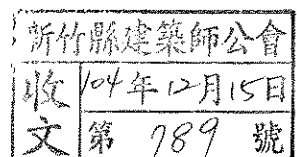 新竹縣建築師公會
收文
104年12月15日
第 789 號